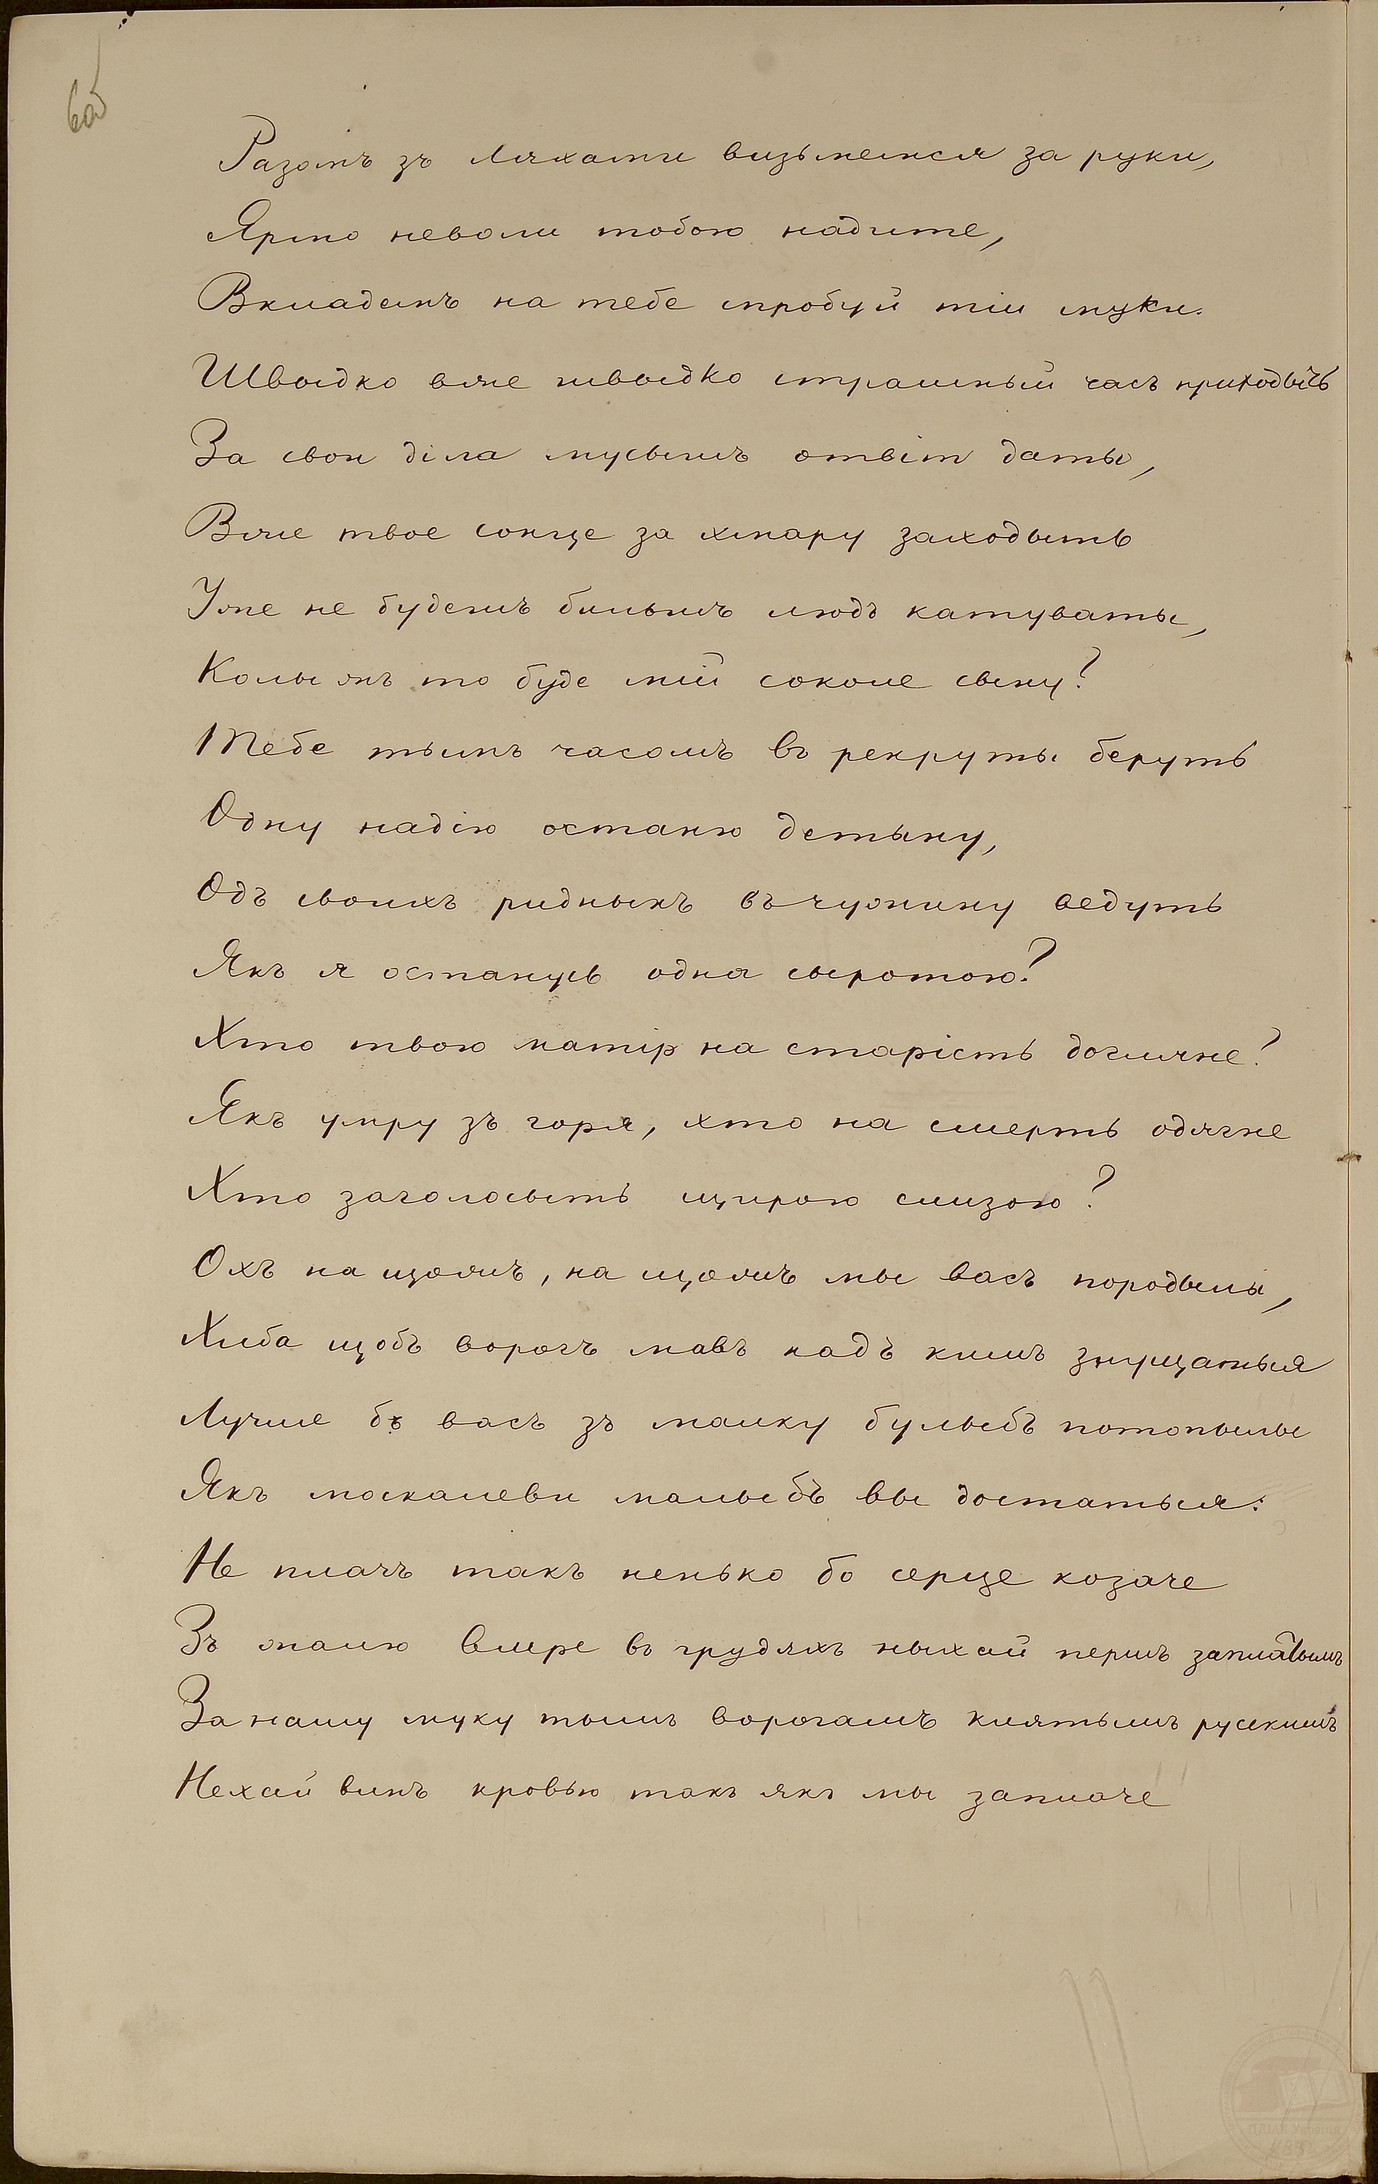 6об
Разомъ зъ Ляхами визьмемся за руки,
Ярмо неволи тобою надите,
Вкладемъ на тебе спробуй тіи муки.
Швыдко вже швыдко страшный часъ приходыть
За свои діла мусышъ отвіт даты,
Вже твое сонце за хмару заходыть
Уже не будешъ бильшъ людъ катуваты,
Колы жъ то буде мій соколе сыну?
Тебе тымъ часомъ въ рекруты беруть
Одну надію останю детыну,
Одъ своихъ ридныхъ въ чужину ведуть
Якъ я останусь одна сыротою?
Хто твою матір на старість догляне?
Якъ умру зъ горя, хто на смерть одягне
Хто заголосыть щирою слизою?
Охъ на щожъ, на щожъ мы васъ породылы,
Хиба щобъ ворогъ мавъ надъ кимъ знущатыся
Лучше бъ васъ зъ малку булыбъ потопылы
Якъ москалеви малыбъ вы достатыся.
Не плачъ такъ ненько бо серце козаче
Зъ жалю вмре въ грудяхъ ныхай першъ заплатымъ
За нашу муку тымъ ворогамъ клятымъ руськимъ
Нехай винъ кровью такъ якъ мы заплаче